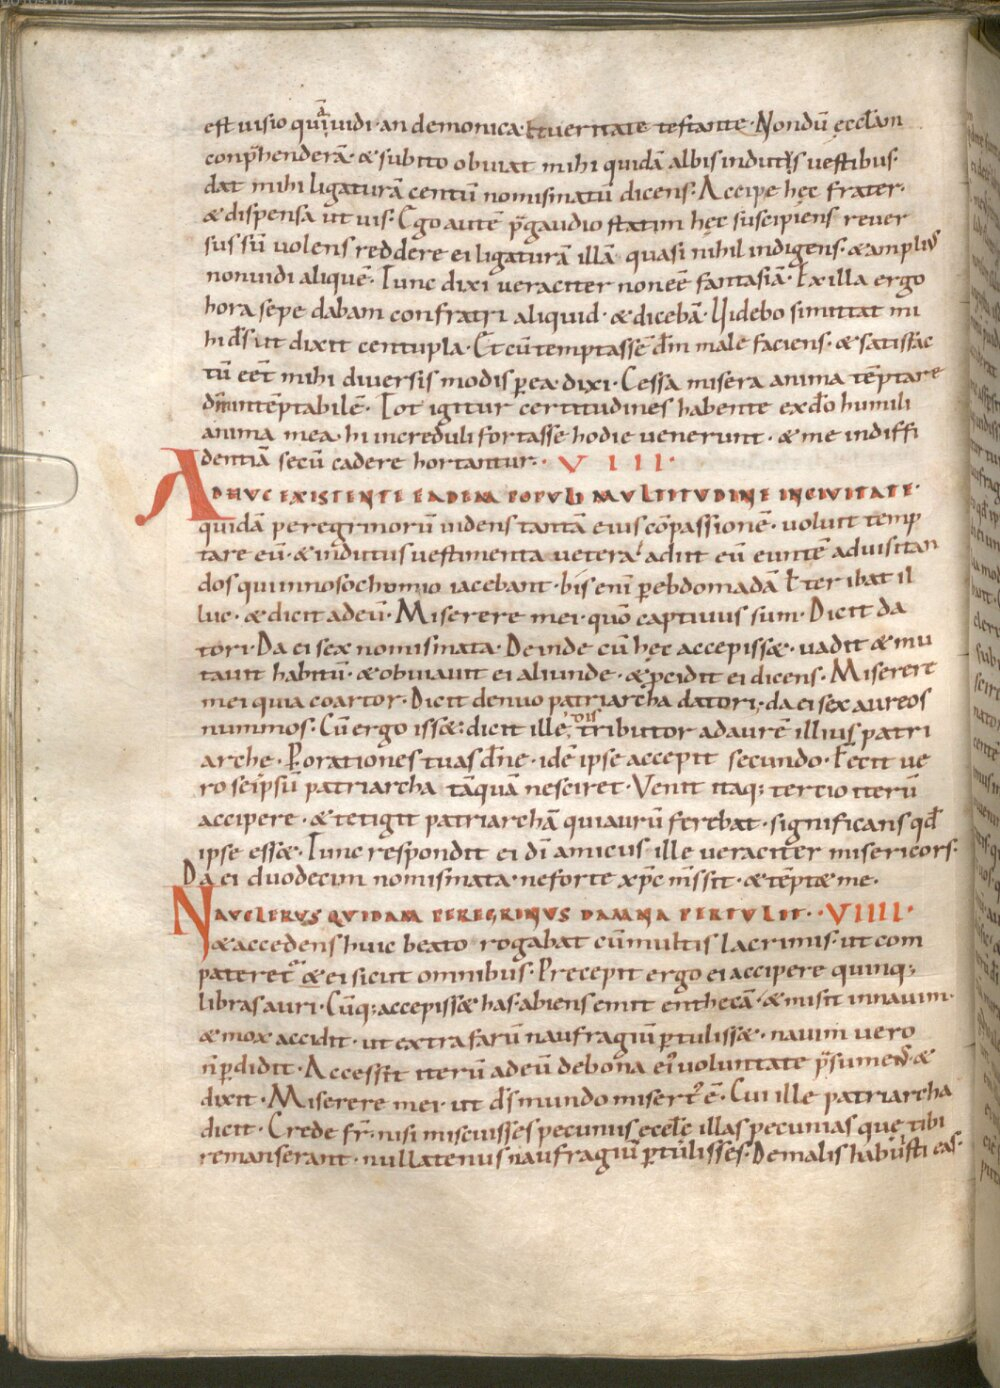 est uisio quā uidi· an demonica· Et ueritate testante· Nondū ęccl̄am
conp̄henderā· & subito obuiat mihi quidā albis indutus uestibus·
dat mihi ligaturā centū nomismatū dicens· Accipe hęc frater·
& dispensa ut uis· Ego autē p̄ gaudio statim hęc suscipiens reuer
sus sū uolens reddere ei ligaturā illā quasi nihil indigens· & ampli⁹
non uidi aliquē· Tunc dixi ueraciter non eē fantasiā· Ex illa ergo
hora sepe dabam confratri aliquid· & dicebā· Videbo si mittat mi
hi d̄s ut dixit centupla· Et cū temptassē dn̄m male faciens· & satisfac
tū eēt mihi diuersis modis ꝑ ea· dixi· Cessa misera anima tēptare
dn̄m intēptabilē· Tot igitur certitudines habente ex dō humili
anima mea· hi increduli fortasse hodie uenerunt· & me in diffi
dentiā secū cadere hortantur· VIII·
ADHUC EXISTENTE EADEM POPULI MULTITUDINE IN CIVITATE·
quidā peregrinorū uidens tantā eius cōpassionē· uoluit temp
tare eū· & indutus uestimenta uetera· adiit eū euntē ad uisitan
dos qui in nosochomio iacebant· bis enī ꝑ ebdomadā ł ter ibat il
luc· & dicit ad eū· Miserere mei· quō captiuus sum· Dicit da
tori· Da ei sex nomismata· Deinde cū hęc accepiss&· uadit & mu
tauit habitū· & obuiauit ei aliunde· & p̄cidit ei dicens· Miserere
mei quia coartor· Dicit denuo patriarcha datori· da ei sex aureos
nummos· Cū ergo iss&· dicit ille distributor ad aurē illius patri
arche· Per orationes tuas dn̄e· idē ipse accepit secundo· Fecit ue
ro seipsū patriarcha tāquā nesciret· Venit itaq; tertio iterū
accipere· & tetigit patriarchā qui aurū ferebat· significans qd̄
ipse ess&· Tunc respondit ei dī amicus ille ueraciter misericors·
Da ei duodecim nomismata· ne forte xp̄c m̄ssit· & tēpt& me·
NAUCLERUS QUIDAM PEREGRINUS DAMNA PERTULIT·· VIIII·
& accedens huic beato rogabat cū multis lacrimis· ut com
pateret̄ & ei sicut omnibus· Precepit ergo ei accipere quinq;
libras auri· Cūq; accepiss& has· abiens emit enthecā· & misit in nauim·
& mox accidit· ut extra farū naufragiū ꝑtuliss&· nauim uero
n̄ ꝑdidit· Accessit iterū ad eū de bona ei⁹ uoluntate p̄sumens· &
dixit· Miserere mei· ut d̄s mundo misert⁹ ē· Cui ille patriarcha
dicit· Crede fr̄· nisi miscuisses pecuniis eccl̄ę illas pecunias quę tibi
remanserant· nullatenus naufragiū ꝑtulisses· De malis habuisti eas·